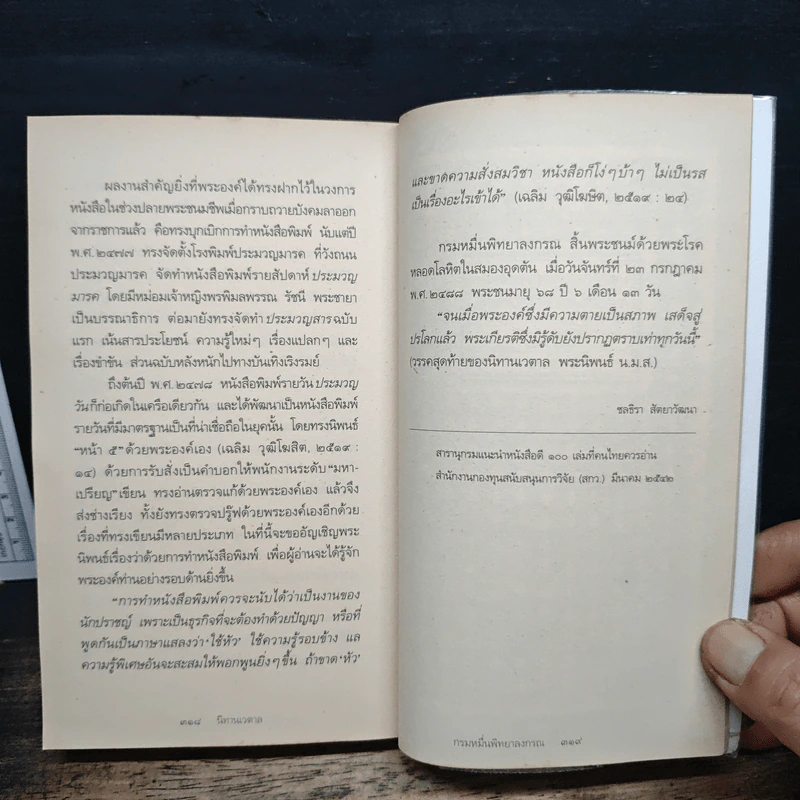 ผลงานสำคัญยิ่งที่พระองค์ได้ทรงฝากไว้ในวงการ
หนังสือในช่วงปลายพระชนมชีพเมื่อกราบถวายบังคมลาออก
จากราชการแล้ว คือทรงบุกเบิกการทำหนังสือพิมพ์ นับแต่ปี
พ.ศ.๒๔๗๗ ทรงจัดตั้งโรงพิมพ์ประมวญมารค ที่วังถนน
ประมวญมารค จัดทำหนังสือพิมพ์รายสัปดาห์ ประมวญ
มารค โดยมีหม่อมเจ้าหญิงพรพิมลพรรณ รัชนี พระชายา
เป็นบรรณาธิการ ต่อมายังทรงจัดทำ ประมวญสาร ฉบับ
แรก เน้นสารประโยชน์ ความรู้ใหม่ๆ เรื่องแปลกๆ และ
เรื่องขำขัน ส่วนฉบับหลังหนักไปทางบันเทิงเริงรมย์
ถึงต้นปี พ.ศ.๒๔๗๘ หนังสือพิมพ์รายวัน ประมวญ
วัน ก็ก่อเกิดในเครือเดียวกัน และได้พัฒนาเป็นหนังสือพิมพ์
รายวันที่มีมาตรฐานเป็นที่น่าเชื่อถือในยุคนั้น โดยทรงนิพนธ์
“หน้า ๕” ด้วยพระองค์เอง (เฉลิม วุฒิโฆสิต, ๒๕๑๙ :
๑๔) ด้วยการรับสั่งเป็นคำบอกให้พนักงานระดับ “มหา-
เปรียญ” เขียน ทรงอ่านตรวจแก้ด้วยพระองค์เอง แล้วจึง
ส่งช่างเรียง ทั้งยังทรงตรวจปรู๊ฟด้วยพระองค์เองอีกด้วย
เรื่องที่ทรงเขียนมีหลายประเภท ในที่นี้จะขออัญเชิญพระ
นิพนธ์เรื่องว่าด้วยการทำหนังสือพิมพ์ เพื่อผู้อ่านจะได้รู้จัก
พระองค์ท่านอย่างรอบด้านยิ่งขึ้น
“การทำหนังสือพิมพ์ควรจะนับได้ว่าเป็นงานของ
นักปราชญ์ เพราะเป็นธุรกิจที่จะต้องทำด้วยปัญญา หรือที่
พูดกันเป็นภาษาแสลงว่า ‘ใช้หัว’ ใช้ความรู้รอบข้าง แล
ความรู้พิเศษอันจะสะสมให้พอกพูนยิ่งๆ ขึ้น ถ้าขาด ‘หัว’
๓๑๘ นิทานเวตาล
และขาดความสั่งสมวิชา หนังสือก็โง่ๆ บ้าๆ ไม่เป็นรส
เป็นเรื่องอะไรเข้าได้” (เฉลิม วุฒิโฆษิต, ๒๕๑๙ : ๒๔)
กรมหมื่นพิทยาลงกรณ สิ้นพระชนม์ด้วยพระโรค
หลอดโลหิตในสมองอุดตัน เมื่อวันจันทร์ที่ ๒๓ กรกฎาคม
พ.ศ.๒๔๘๘ พระชนมายุ ๖๘ ปี ๖ เดือน ๑๓ วัน
“จนเมื่อพระองค์ซึ่งมีความตายเป็นสภาพ เสด็จสู่
ปรโลกแล้ว พระเกียรติซึ่งมีรู้ดับยังปรากฏตราบเท่าทุกวันนี้”
(วรรคสุดท้ายของนิทานเวตาล พระนิพนธ์ น.ม.ส.)
ชลธิรา สัตยาวัฒนา
สารานุกรมแนะนำหนังสือดี ๑๐๐ เล่มที่คนไทยควรอ่าน
สำนักงานกองทุนสนับสนุนการวิจัย (สกว.) มีนาคม ๒๕๔๒
กรมหมื่นพิทยาลงกรณ ๓๑๙